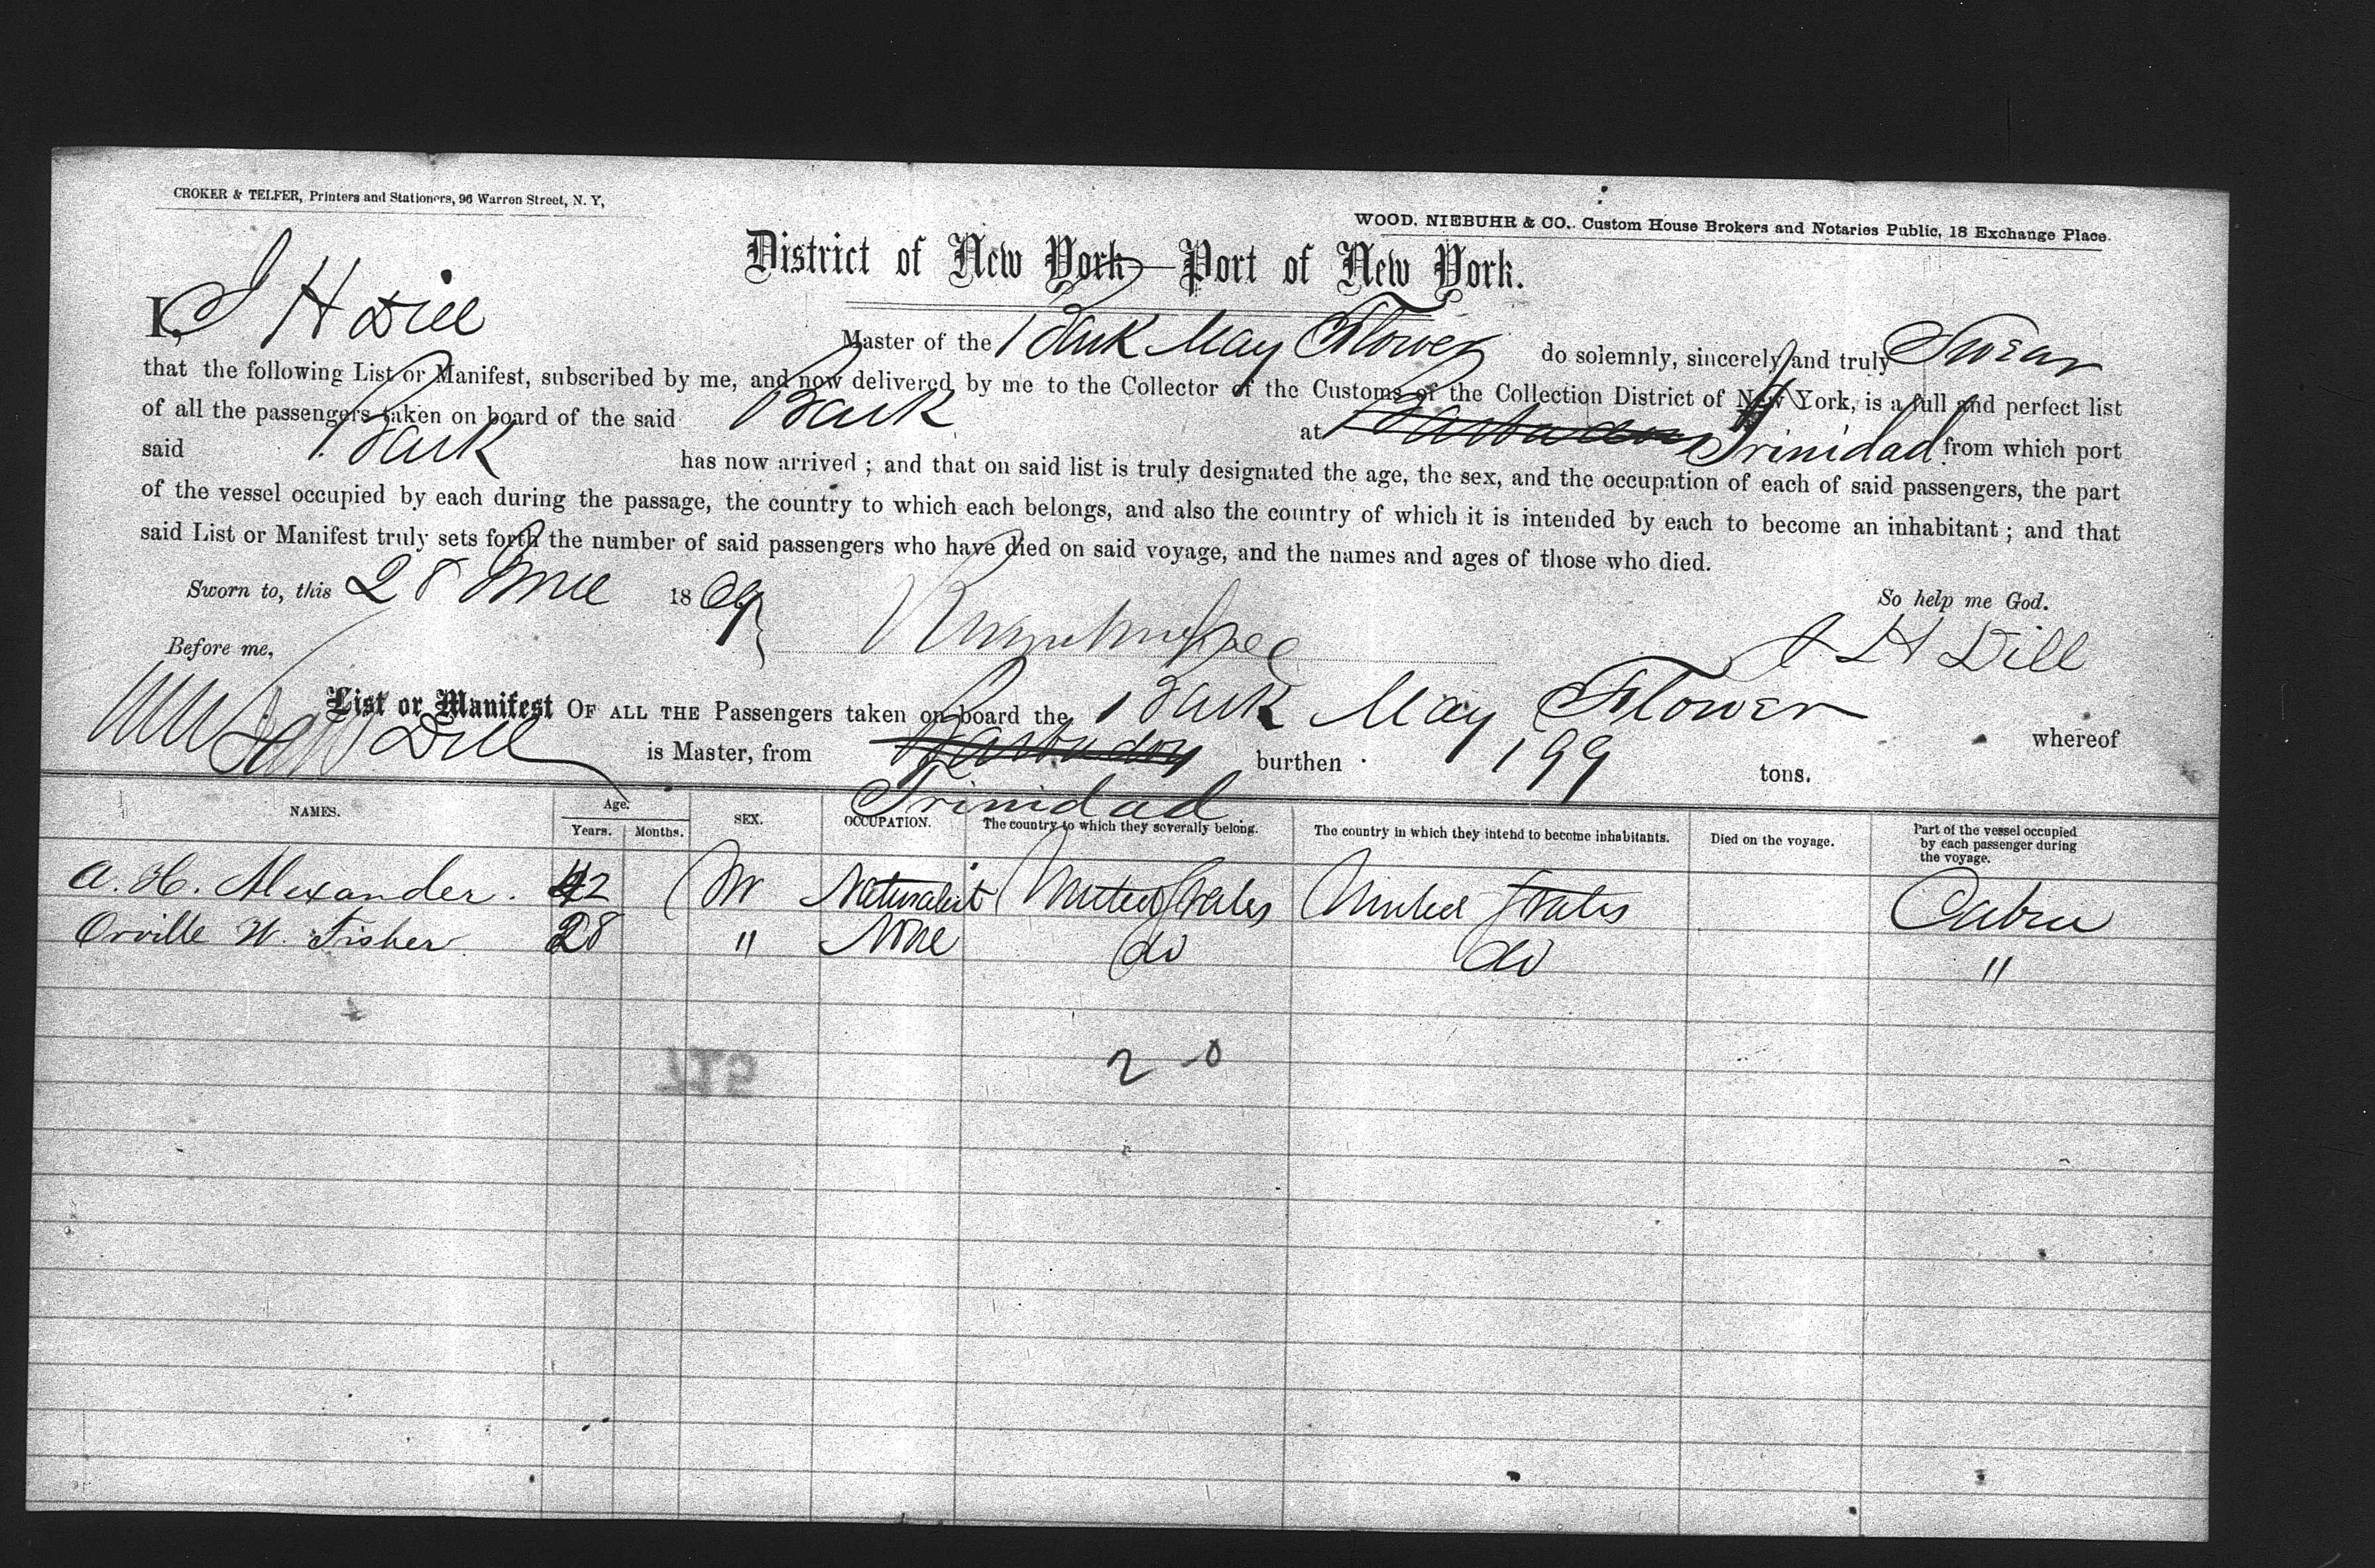 CROKER & TELFER, Printers and Stationers, 96 Warren Street, N. Y,
WOOD, NIEBUHR & CO., Custom House Brokers and Notaries Public, 18 Exchange Place.
District of New York—Port of New York.
I, J H Dill Master of the Bark May Flower do solemnly, sincerely and truly Swear
that the following List or Manifest, subscribed by me, and now delivered by me to the Collector of the Customs of the Collection District of New York, is a full and perfect list
of all the passengers taken on board of the said Bark at Barbadoes Trinidad from which port
said Bark has now arrived ; and that on said list is truly designated the age, the sex, and the occupation of each of said passengers, the part
of the vessel occupied by each during the passage, the country to which each belongs, and also the country of which it is intended by each to become an inhabitant ; and that
said List or Manifest truly sets forth the number of said passengers who have died on said voyage, and the names and ages of those who died.
Sworn to, this 28 June 1869 So help me God.
Before me, J H Dill
List or Manifest OF ALL THE Passengers taken on board the Bark May Flower whereof
Dill is Master, from Barbadoes burthen 199 tons.
Trinidad
NAMES. Age. Years. Months. SEX. OCCUPATION. The country to which they severally belong. The country in which they intend to become inhabitants. Died on the voyage. Part of the vessel occupied by each passenger during the voyage.
A. H. Alexander. 42 M Naturalist United States United States Cabin
Orville W. Fisher 28 " None do do "
2 - 0